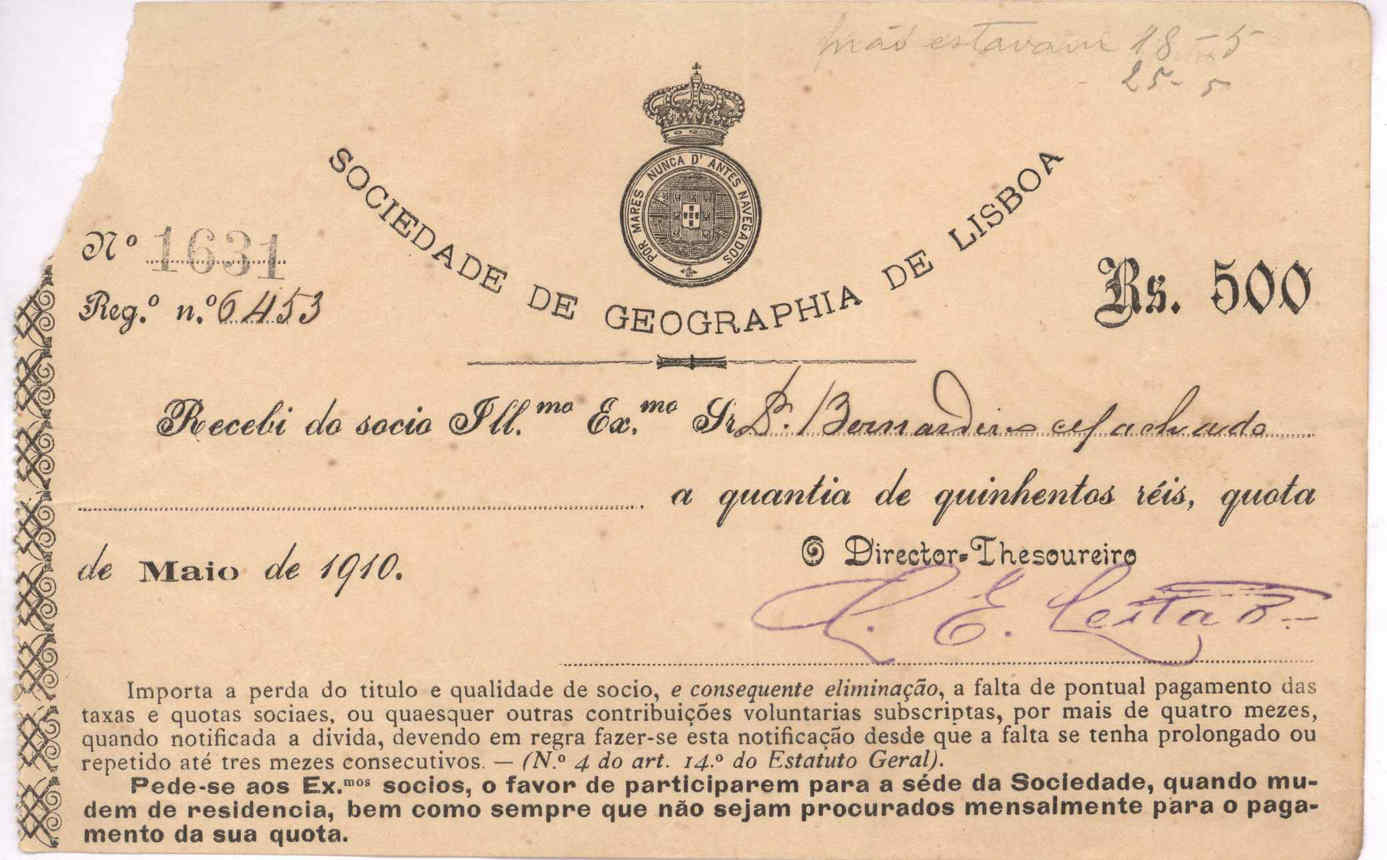 não estavam 18-5
25-5
POR MARES NUNCA D'ANTES NAVEGADOS
SOCIEDADE DE GEOGRAPHIA DE LISBOA
Nº 1631
Rs. 500
Reg.º n.º 6453
Recebi do socio Ill.mo Ex.mo Sr D. Bernardino Machado
a quantia de quinhentos réis, quota
de Maio de 1910.
O Director-Thesoureiro
E. Leitão
Importa a perda do titulo e qualidade de socio, e consequente eliminação, a falta de pontual pagamento das
taxas e quotas sociaes, ou quaesquer outras contribuições voluntarias subscriptas, por mais de quatro mezes,
quando notificada a divida, devendo em regra fazer-se esta notificação desde que a falta se tenha prolongado ou
repetido até tres mezes consecutivos. — (N.º 4 do art. 14.º do Estatuto Geral).
Pede-se aos Ex.mos socios, o favor de participarem para a séde da Sociedade, quando mu-
dem de residencia, bem como sempre que não sejam procurados mensalmente para o paga-
mento da sua quota.